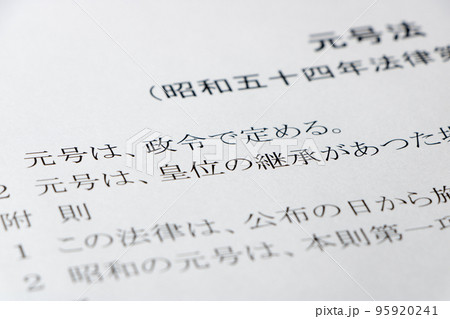 元号法
(昭和五十四年法律第
元号は、政令で定める。
2 元号は、皇位の継承があつた場
附 則
1 この法律は、公布の日から施
2 昭和の元号は、本則第一項
pixta.jp - 95920241